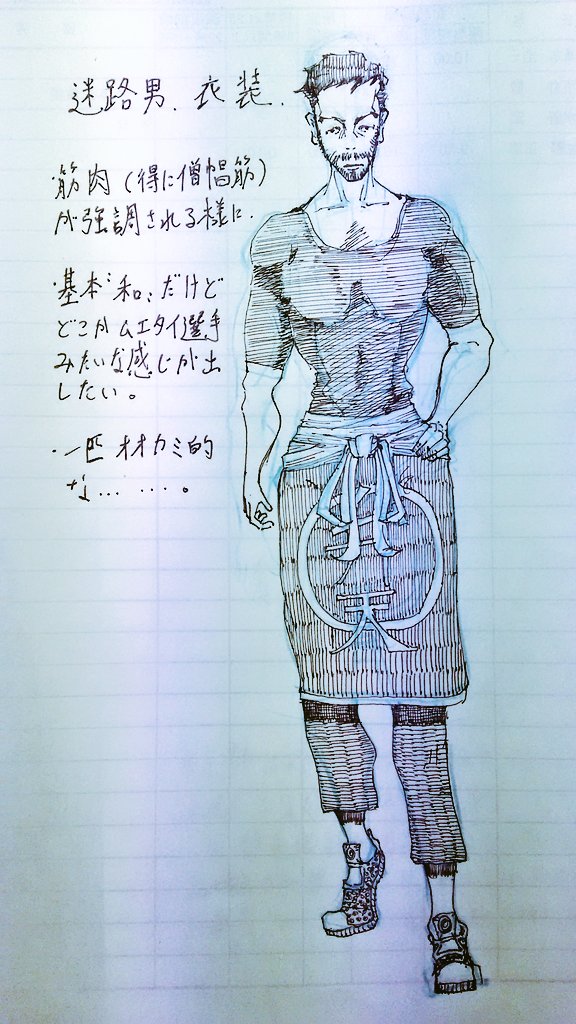 迷路男、衣装.
・筋肉(得に僧帽筋)
が強調される様に.
・基本“和”だけど
どこかムエタイ選手
みたいな感じが出
したい。
・一匹オオカミ的
な… …。